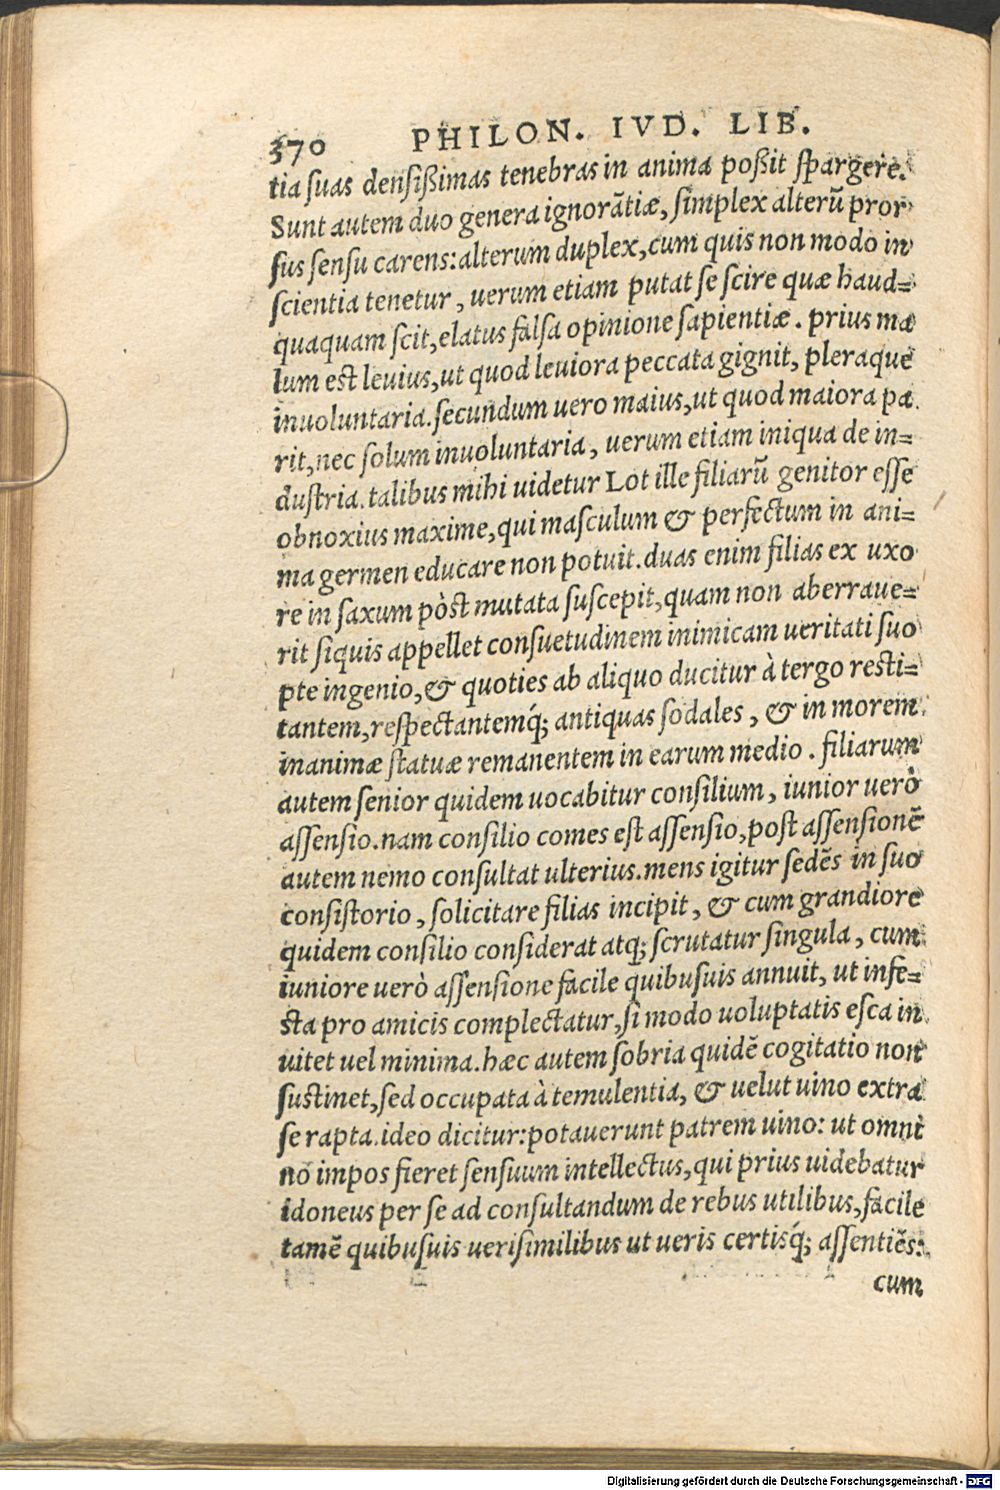 370 PHILON. IVD. LIB.
tia suas densißimas tenebras in anima poßit spargere.
Sunt autem duo genera ignorãtiæ, simplex alterũ pror
sus sensu carens: alterum duplex, cum quis non modo in
scientia tenetur, uerum etiam putat se scire quæ haud=
quaquam scit, elatus falsa opinione sapientiæ. prius ma
lum est leuius, ut quod leuiora peccata gignit, pleraque
inuoluntaria. secundum uero maius, ut quod maiora pa
rit, nec solum inuoluntaria, uerum etiam iniqua de in=
dustria. talibus mihi uidetur Lot ille filiarũ genitor esse
obnoxius maxime, qui masculum & perfectum in ani=
ma germen educare non potuit. duas enim filias ex uxo
re in saxum pòst mutata suscepit, quam non aberraue=
rit siquis appellet consuetudinem inimicam ueritati suo
pte ingenio, & quoties ab aliquo ducitur à tergo resti=
tantem, respectantemq́; antiquas sodales, & in morem
inanimæ statuæ remanentem in earum medio. filiarum
autem senior quidem uocabitur consilium, iunior uerò
assensio. nam consilio comes est assensio, post assensionẽ
autem nemo consultat ulterius. mens igitur sedẽs in suo
consistorio, solicitare filias incipit, & cum grandiore
quidem consilio considerat atq; scrutatur singula, cum
iuniore uerò assensione facile quibusuis annuit, ut infe=
sta pro amicis complectatur, si modo uoluptatis esca in
uitet uel minima. hæc autem sobria quidẽ cogitatio non
sustinet, sed occupata à temulentia, & uelut uino extra
se rapta. ideo dicitur: potauerunt patrem uino: ut omni
nõ impos fieret sensuum intellectus, qui prius uidebatur
idoneus per se ad consultandum de rebus utilibus, facile
tamẽ quibusuis uerisimilibus ut ueris certisq́; assentiẽs:
cum
Digitalisierung gefördert durch die Deutsche Forschungsgemeinschaft - DFG